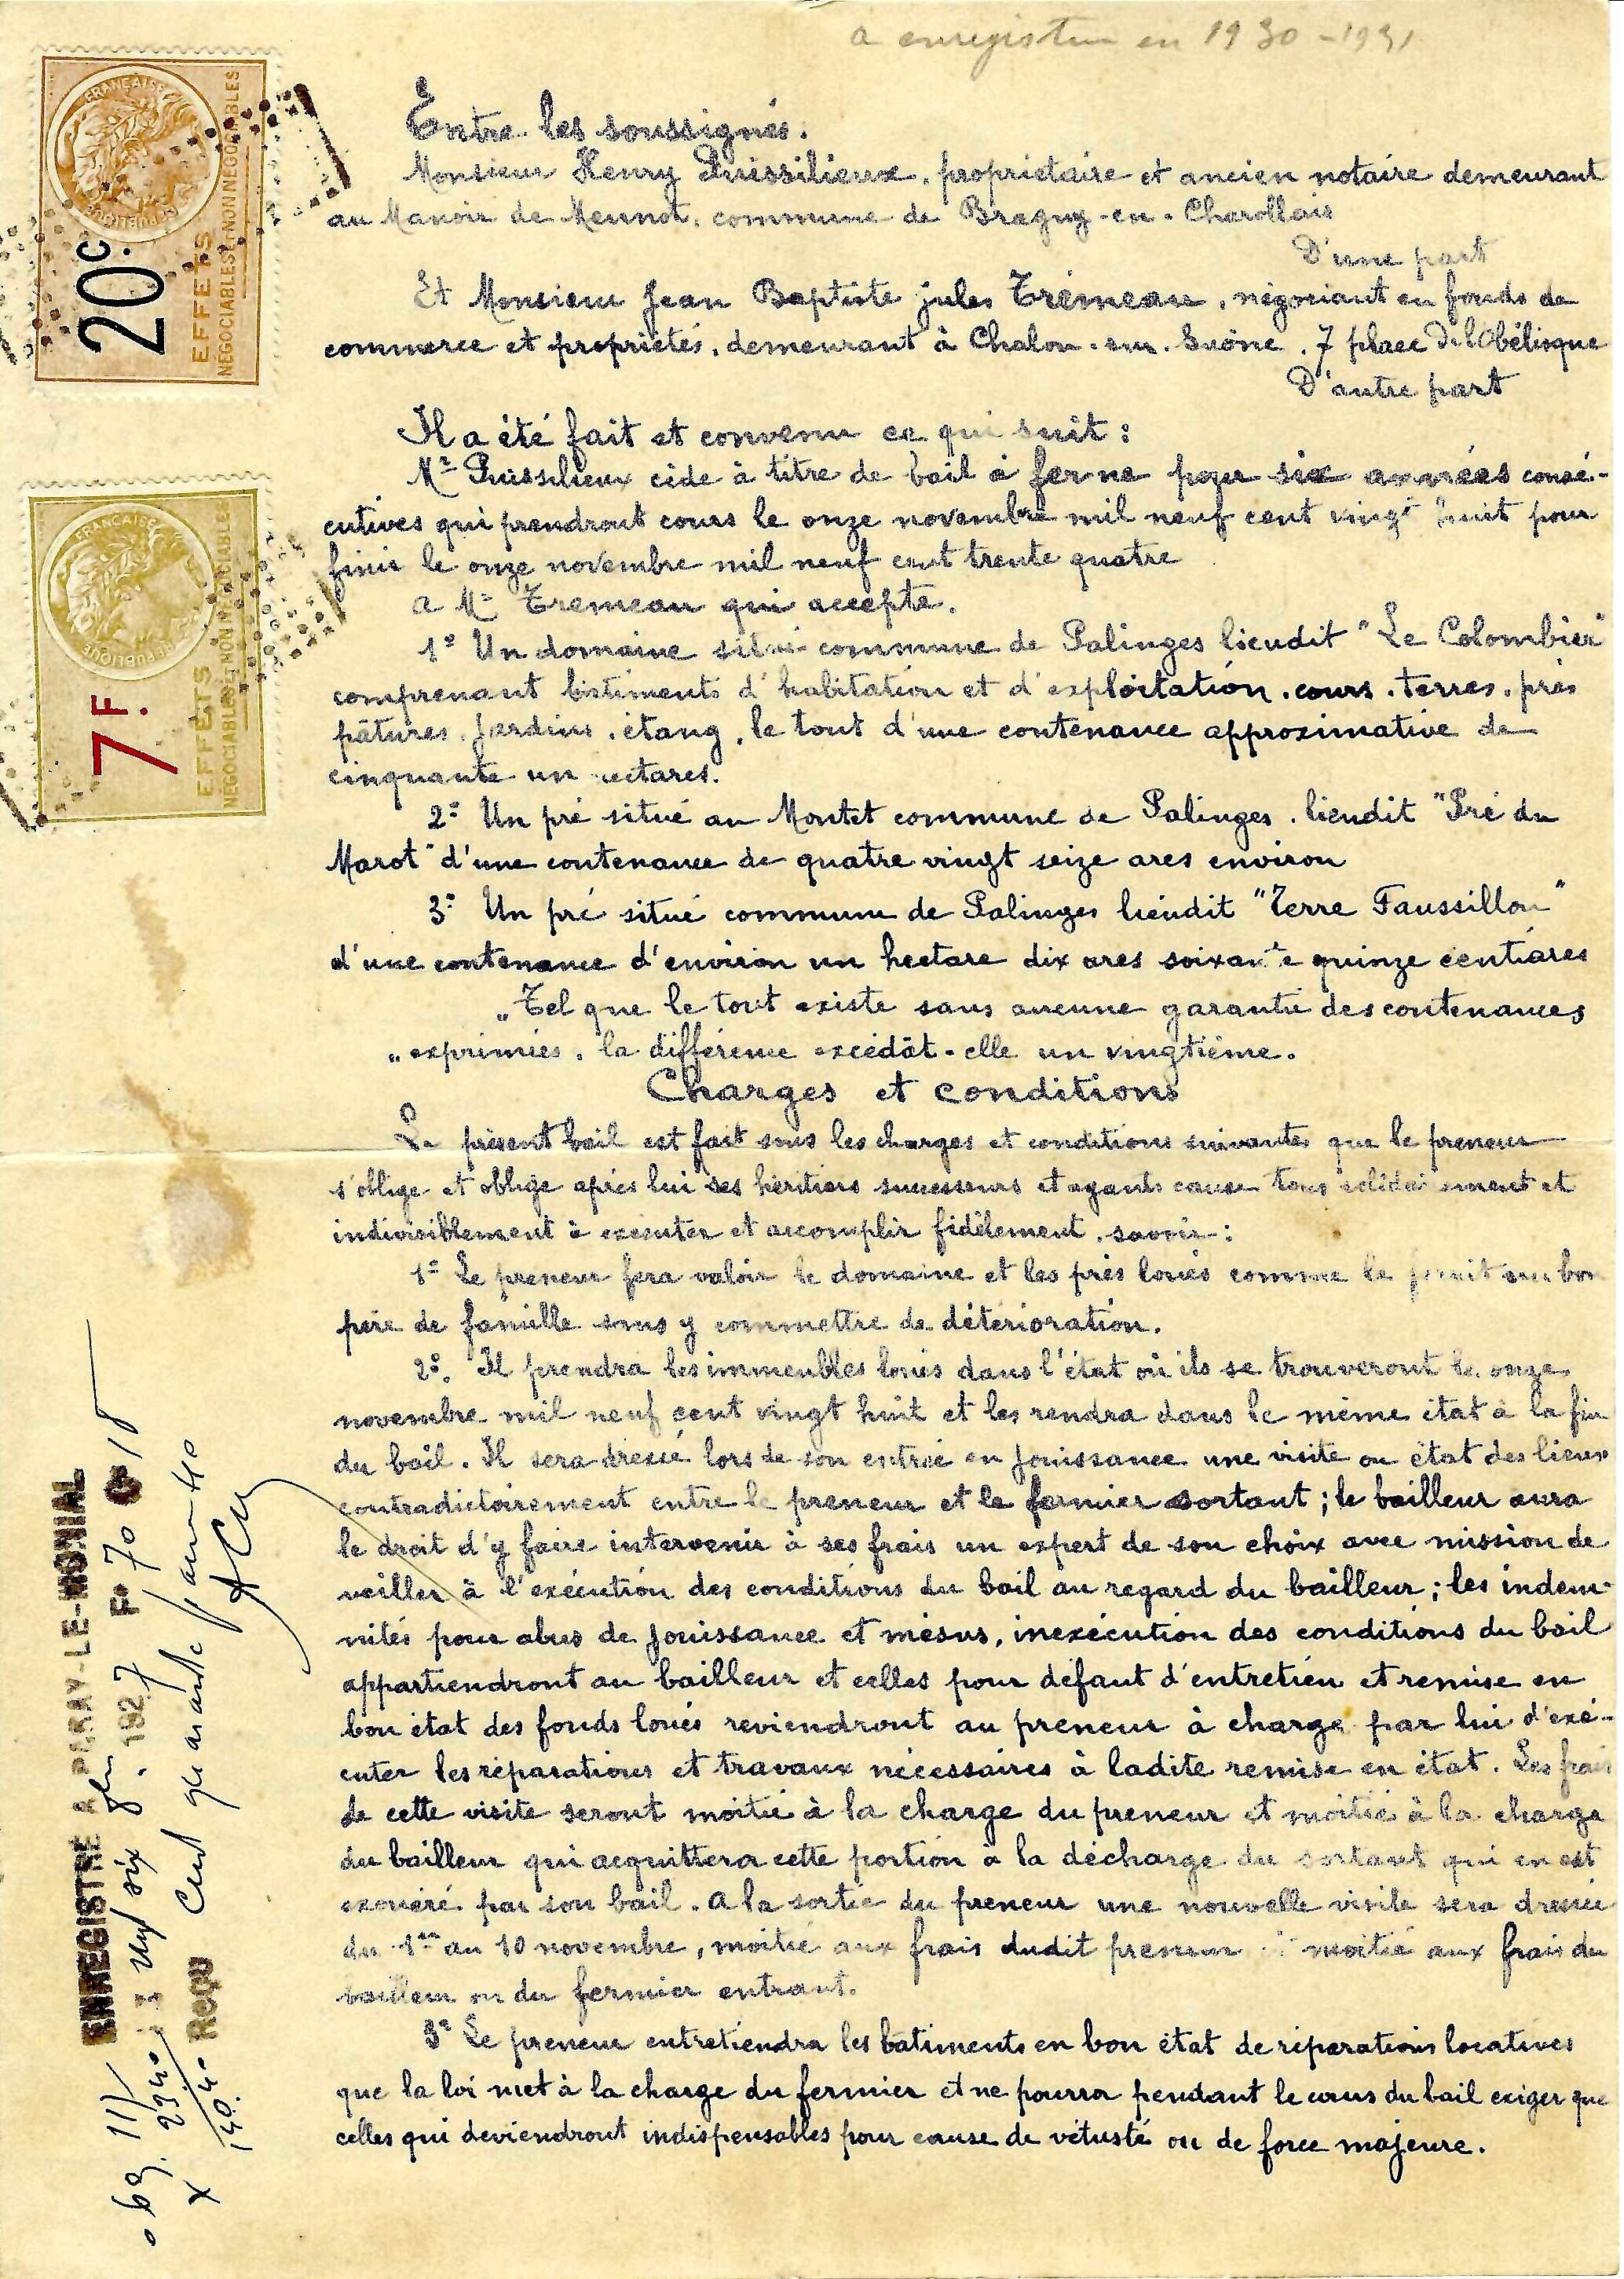 a enregistrer en 1930-1931
Entre les soussignés.
Monsieur Henry Puissilieux, propriétaire et ancien notaire demeurant
au Manoir de Mennot, commune de Bragny-en-Charollais
D'une part
Et Monsieur Jean Baptiste jules Trémeau, négociant en fonds de
commerce et propriétés, demeurant à Chalon-sur-Saône, 7 place de l'Obélisque
D'autre part
Il a été fait et convenu ce qui suit :
Mr Puissilieux cède à titre de bail à ferme pour six années consé-
cutives qui prendront cours le onze novembre mil neuf cent vingt huit pour
finir le onze novembre mil neuf cent trente quatre
a Mr Tremeau qui accepte.
1° Un domaine situé commune de Palinges lieudit "Le Colombier"
comprenant bâtiments d'habitation et d'exploitation, cours, terres, prés
pâtures, Jardins, étang, le tout d'une contenance approximative de
cinquante un hectares.
2° Un pré situé au Montet commune de Palinges, lieudit "Pré du
Marot" d'une contenance de quatre vingt seize ares environ
3° Un pré situé commune de Palinges lieudit "Terre Faussillon"
d'une contenance d'environ un hectare dix ares soixante quinze centiares
"Tel que le tout existe sans aucune garantie des contenances
"exprimées, la différence excédât-elle un vingtième.
Charges et conditions
Le présent bail est fait sous les charges et conditions suivantes que le preneur
s'oblige et oblige après lui ses héritiers successeurs et ayants cause tous solidairement et
indivisiblement à exécuter et accomplir fidèlement, savoir :
1° Le preneur fera valoir le domaine et les prés loués comme le ferait un bon
père de famille sans y commettre de détérioration.
2° Il prendra les immeubles loués dans l'état où ils se trouveront le onze
novembre mil neuf cent vingt huit et les rendra dans le même état à la fin
du bail. Il sera dressé lors de son entrée en Jouissance une visite ou état des lieux
contradictoirement entre le preneur et le fermier sortant ; le bailleur aura
le droit d'y faire intervenir à ses frais un expert de son choix avec mission de
veiller à l'exécution des conditions du bail au regard du bailleur ; les indem-
nités pour abus de Jouissance et mésus, inexécution des conditions du bail
appartiendront au bailleur et celles pour défaut d'entretien et remise en
bon état des fonds loués reviendront au preneur à charge par lui d'exé-
cuter les réparations et travaux nécessaires à ladite remise en état. Les frais
de cette visite seront moitié à la charge du preneur et moitié à la charge
du bailleur qui acquittera cette portion à la décharge du sortant qui en est
exonéré par son bail. A la sortie du preneur une nouvelle visite sera dressée
du 1er au 10 novembre, moitié aux frais dudit preneur et moitié aux frais du
bailleur ou du fermier entrant.
3° Le preneur entretiendra les batiments en bon état de réparations locatives
que la loi met à la charge du fermier et ne pourra pendant le cours du bail exiger que
celles qui deviendront indispensables pour cause de vétusté ou de force majeure.
FRANÇAISE
REPUBLIQUE
20c.
EFFETS
NEGOCIABLES ET NON NEGOCIABLES
FRANÇAISE
REPUBLIQUE
7F.
EFFETS
NEGOCIABLES ET NON NEGOCIABLES
ENREGISTRÉ A PARAY-LE-MONIAL
1927 F° 70
Reçu Cent quarante francs 40